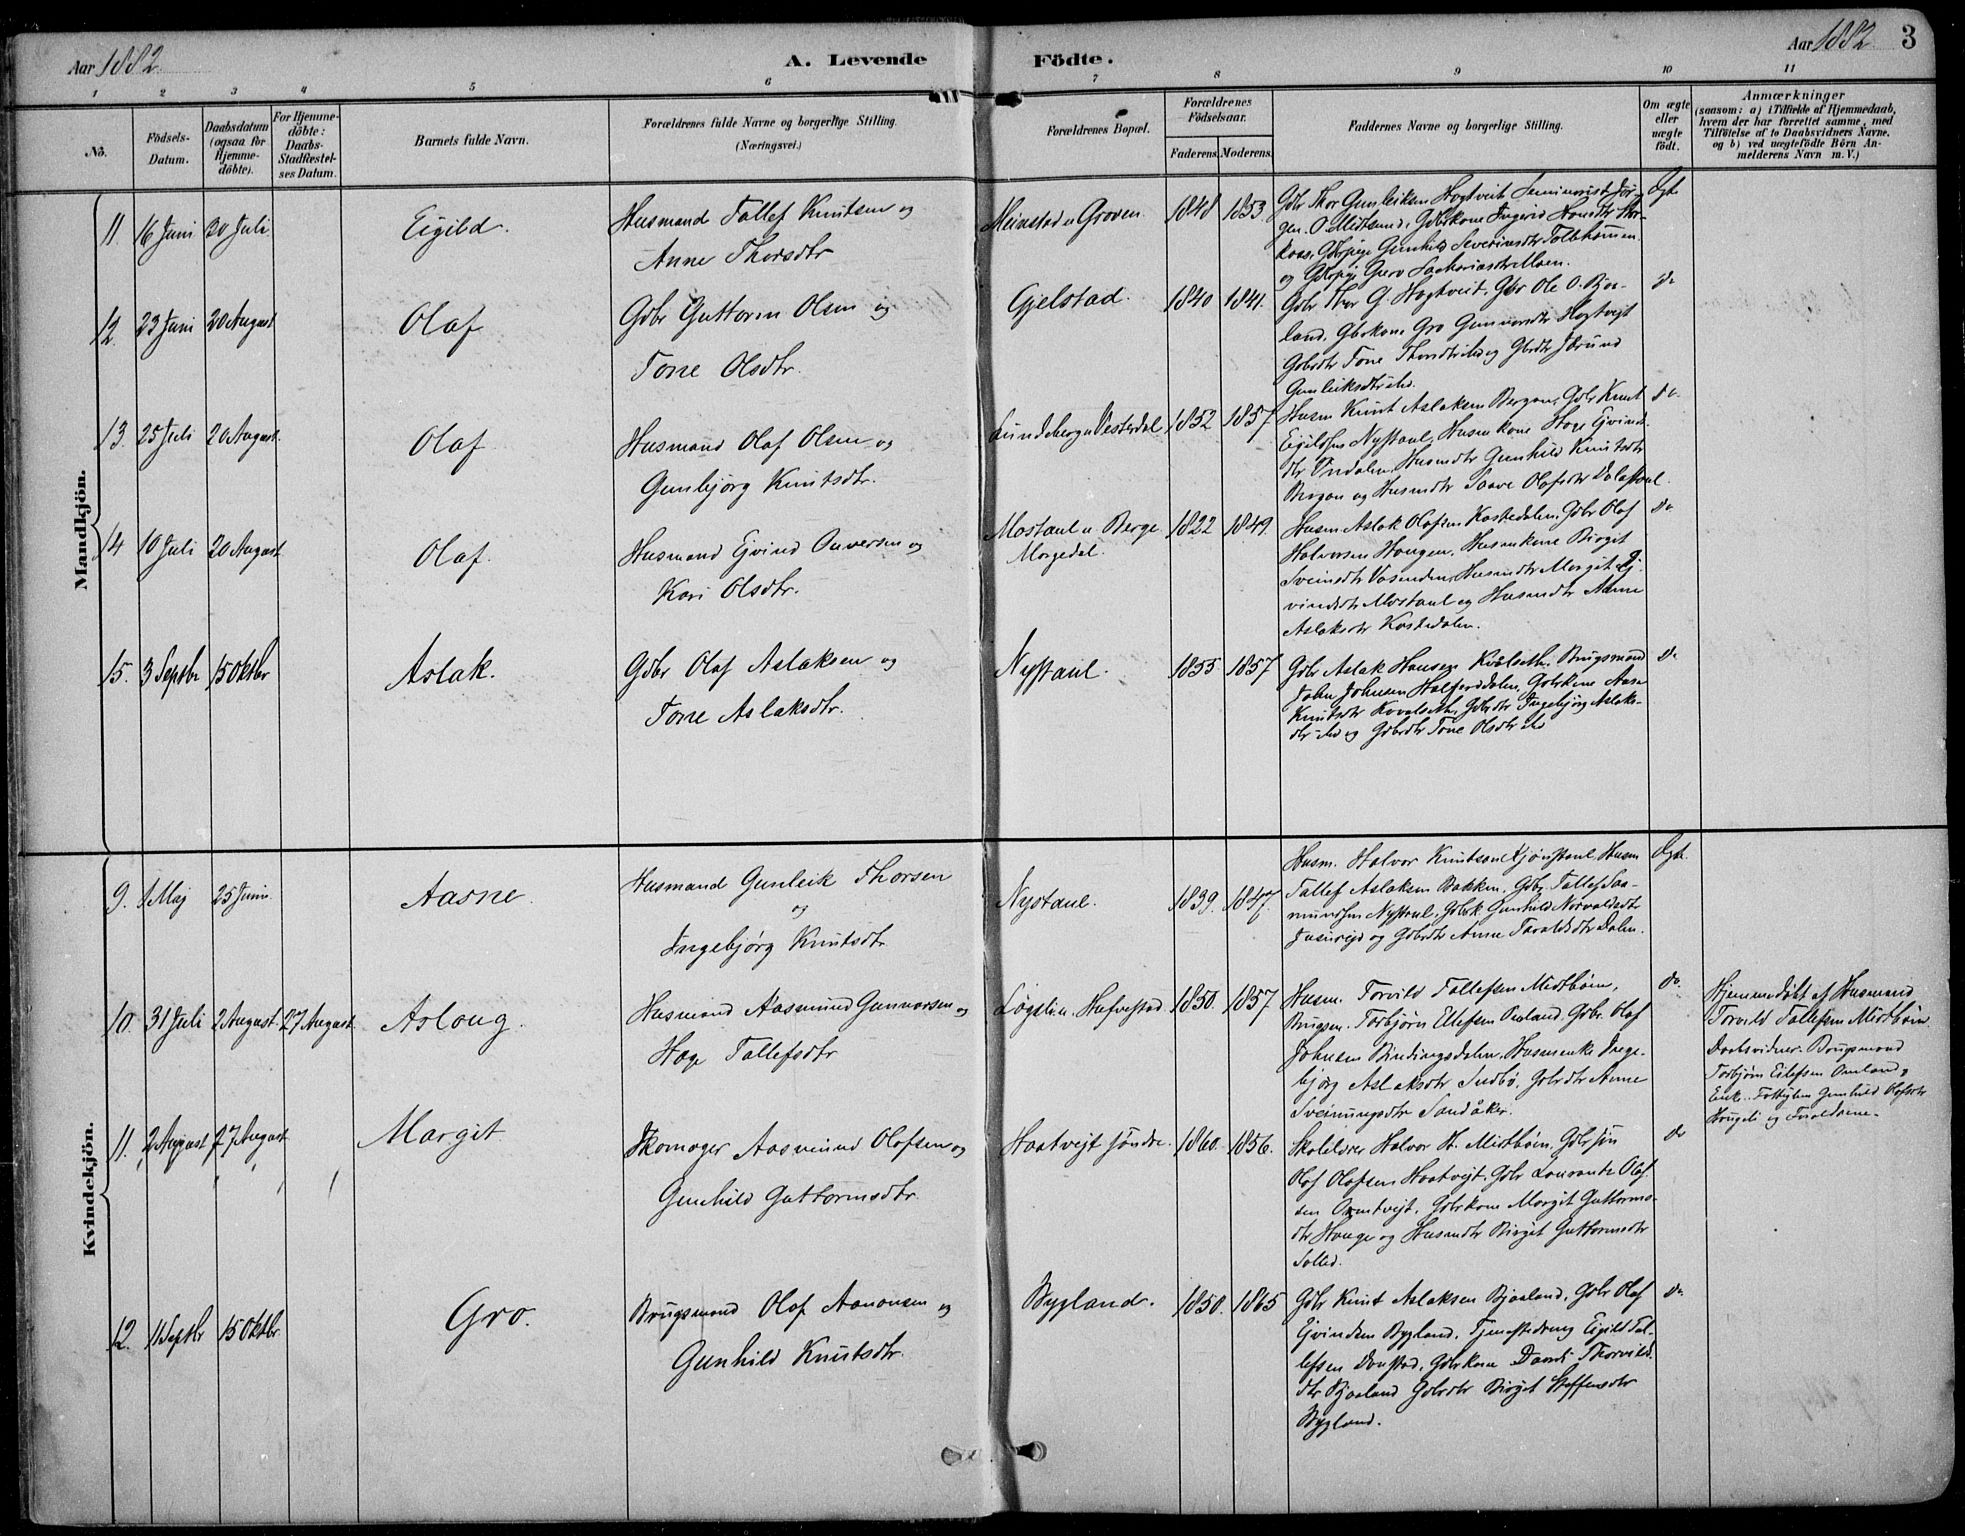 Aar 1882.
A. Levende Födte.
Aar 1882. 3
1 2 3 4 5 6 7 8 9 10 11
No.
Födsels-Datum.
Daabsdatum (ogsaa for Hjemmedöbte).
For Hjemmedöbte: Daabs-Stadfestelses Datum.
Barnets fulde Navn.
Forældrenes fulde Navne og borgerlige Stilling. (Næringsvei.)
Forældrenes Bopæl.
Forældrenes Födselsaar.
Faderens. Moderens.
Faddernes Navne og borgerlige Stilling.
Om ægte eller uægte födt.
Anmærkninger
(saasom: a) i Tilfælde af Hjemmedaab,
hvem der har forrettet samme, med
Tilföielse af to Daabsvidners Navne.
og b) ved uægtefödte Börn An-
melderens Navn m. V.)
Mandkjön.
11. 16 Juni 30 Juli Eigild. Husmand Tallef Knutsen og
Anne Thorsdtr
Meinstad u Groven. 1848 1853.
Gdbr Thor Gunleiksen Hogtveit, Seminarist Jör-
gen O. Midtsund, Gdbrkone Ingerid
Gdbrpige Gunhild Severinsdtr
og Gdbrpige Gero Sachariasdtr Moen.
Ægte
12. 23 Juni 20 August Olaf Gdbr Guttorm Olsen og
Tone Olsdtr.
Gjelstad. 1840 1841.
Gdbr Thor G. Hogtveit, Gbr Ole O. Bjaa-
land, Gbrkone Gro Gunnarsdtr Hogtveit
Gdbrdtr Tone Thorsdtr ibd og Gbrdtr Jörund
Gunleiksdtr ibd.
do
13. 25 Juli 20 August. Olaf Husmand Olaf Olsen og
Gunbjörg Knutsdtr.
Lundeberg u Vesterdal 1852 1857.
Husm Knut Aslaksen Bergan, Gdbr Knut
Eigildsen Nystaul, Husmkone Hæge Ejvinds-
dtr Husmdtr Gunhild Knutsdtr
Bergan og Husmdtr Saave Olafsdtr Dalastaul.
do
14 10 Juli 20 August Olaf. Husmand Ejvind Onversen og
Kari Olsdtr.
Mostaul u Berge
Morgedal.
1822 1849.
Husm Aslak Olafsen Kostedalen, Gdbr Olaf
Halvorsen Haugen, Husmkone Birgit
Sveinsdtr Vasenden, Husmdtr Margit Ej-
vindsdtr Mostaul og Husmdtr Aanne
Aslaksdtr Kostedalen.
do
15. 3 Septbr 15 Oktbr Aslak. Gdbr Olaf Aslaksen og
Tone Aslaksdtr.
Nystaul. 1855 1857
Gdbr Aslak Hansen Kvålseth, Brugsmand
John Johnsen Gdbrkone Aase
Knutsdtr Kovalseth, Gdbrdtr Ingebjörg Aslaks-
dtr ibd og Gdbrdtr Tone Olsdtr ibd
do
Kvindekjön.
9. 1 Maj 25 Juni. Aasne. Husmand Gunleik Thorsen
og
Ingebjørg Knutsdtr
Nystaul. 1839. 1847.
Husm. Halvor Knutsen Kjönstaul, Husm
Tallef Aslaksen Bakken, Gdbr Tallef Saa-
mundsen Nystaul, Gdbrk Gunhild Norvaldsdtr
og Gdbrdtr Anne Taraldsdtr Dalen.
Ægte.
10. 31 Juli 2 August. 27 August. Aslaug. Husmand Aasmund Gunnarsen og
Hæge Tallefsdtr
Løgeli u. Hafvestad. 1850. 1857.
Husm. Torvild Tallefsen Midtböen,
Brugsm. Torbjörn Ellefsen Omland, Gdbr. Olaf
Johnsen Bindingsdalen, Husmenke Inge-
björg Aslaksdtr Sudbö, Gdbrdtr Anne
Sveinungsdtr Sandåker.
do.
Hjemmedöbt af Husmand
Torvild Tallefsen Midtböen
Daabsvidner: Brugsmand
Torbjörn Eilefsen Omland og
Enk. Gunhild Olafsdtr
Haugeli og Forældrene.
11. 2 August 27 August Margit. Skomager Aasmund Olafsen og
Gunhild Guttormsdtr.
Haatvejt söndre. 1860. 1856.
Skolelærer Halvor H. Midtböen, Gdbrsön
Olaf Olafsen Haatvejt, Gdbr Laurants Olaf-
sen Ormtvejt, Gdbrkone Margit Guttorms-
dtr Hauge og Husmdtr Birgit Guttormsdtr
do
12. 11 Septbr 15 Oktbr. Gro. Brugsmand Olaf Aanonsen og
Gunhild Knutsdtr.
Bygland. 1850. 1865
Gdbr Knut Aslaksen Bjaaland, Gdbr Olaf
Ejvindsen Bygland, Tjenestedreng Eigild Tal-
lefsen Gdbrkone Dordi Thorvilds-
dtr Bjaaland Gdbrdtr Birgit Steffensdtr
Bygland.
do